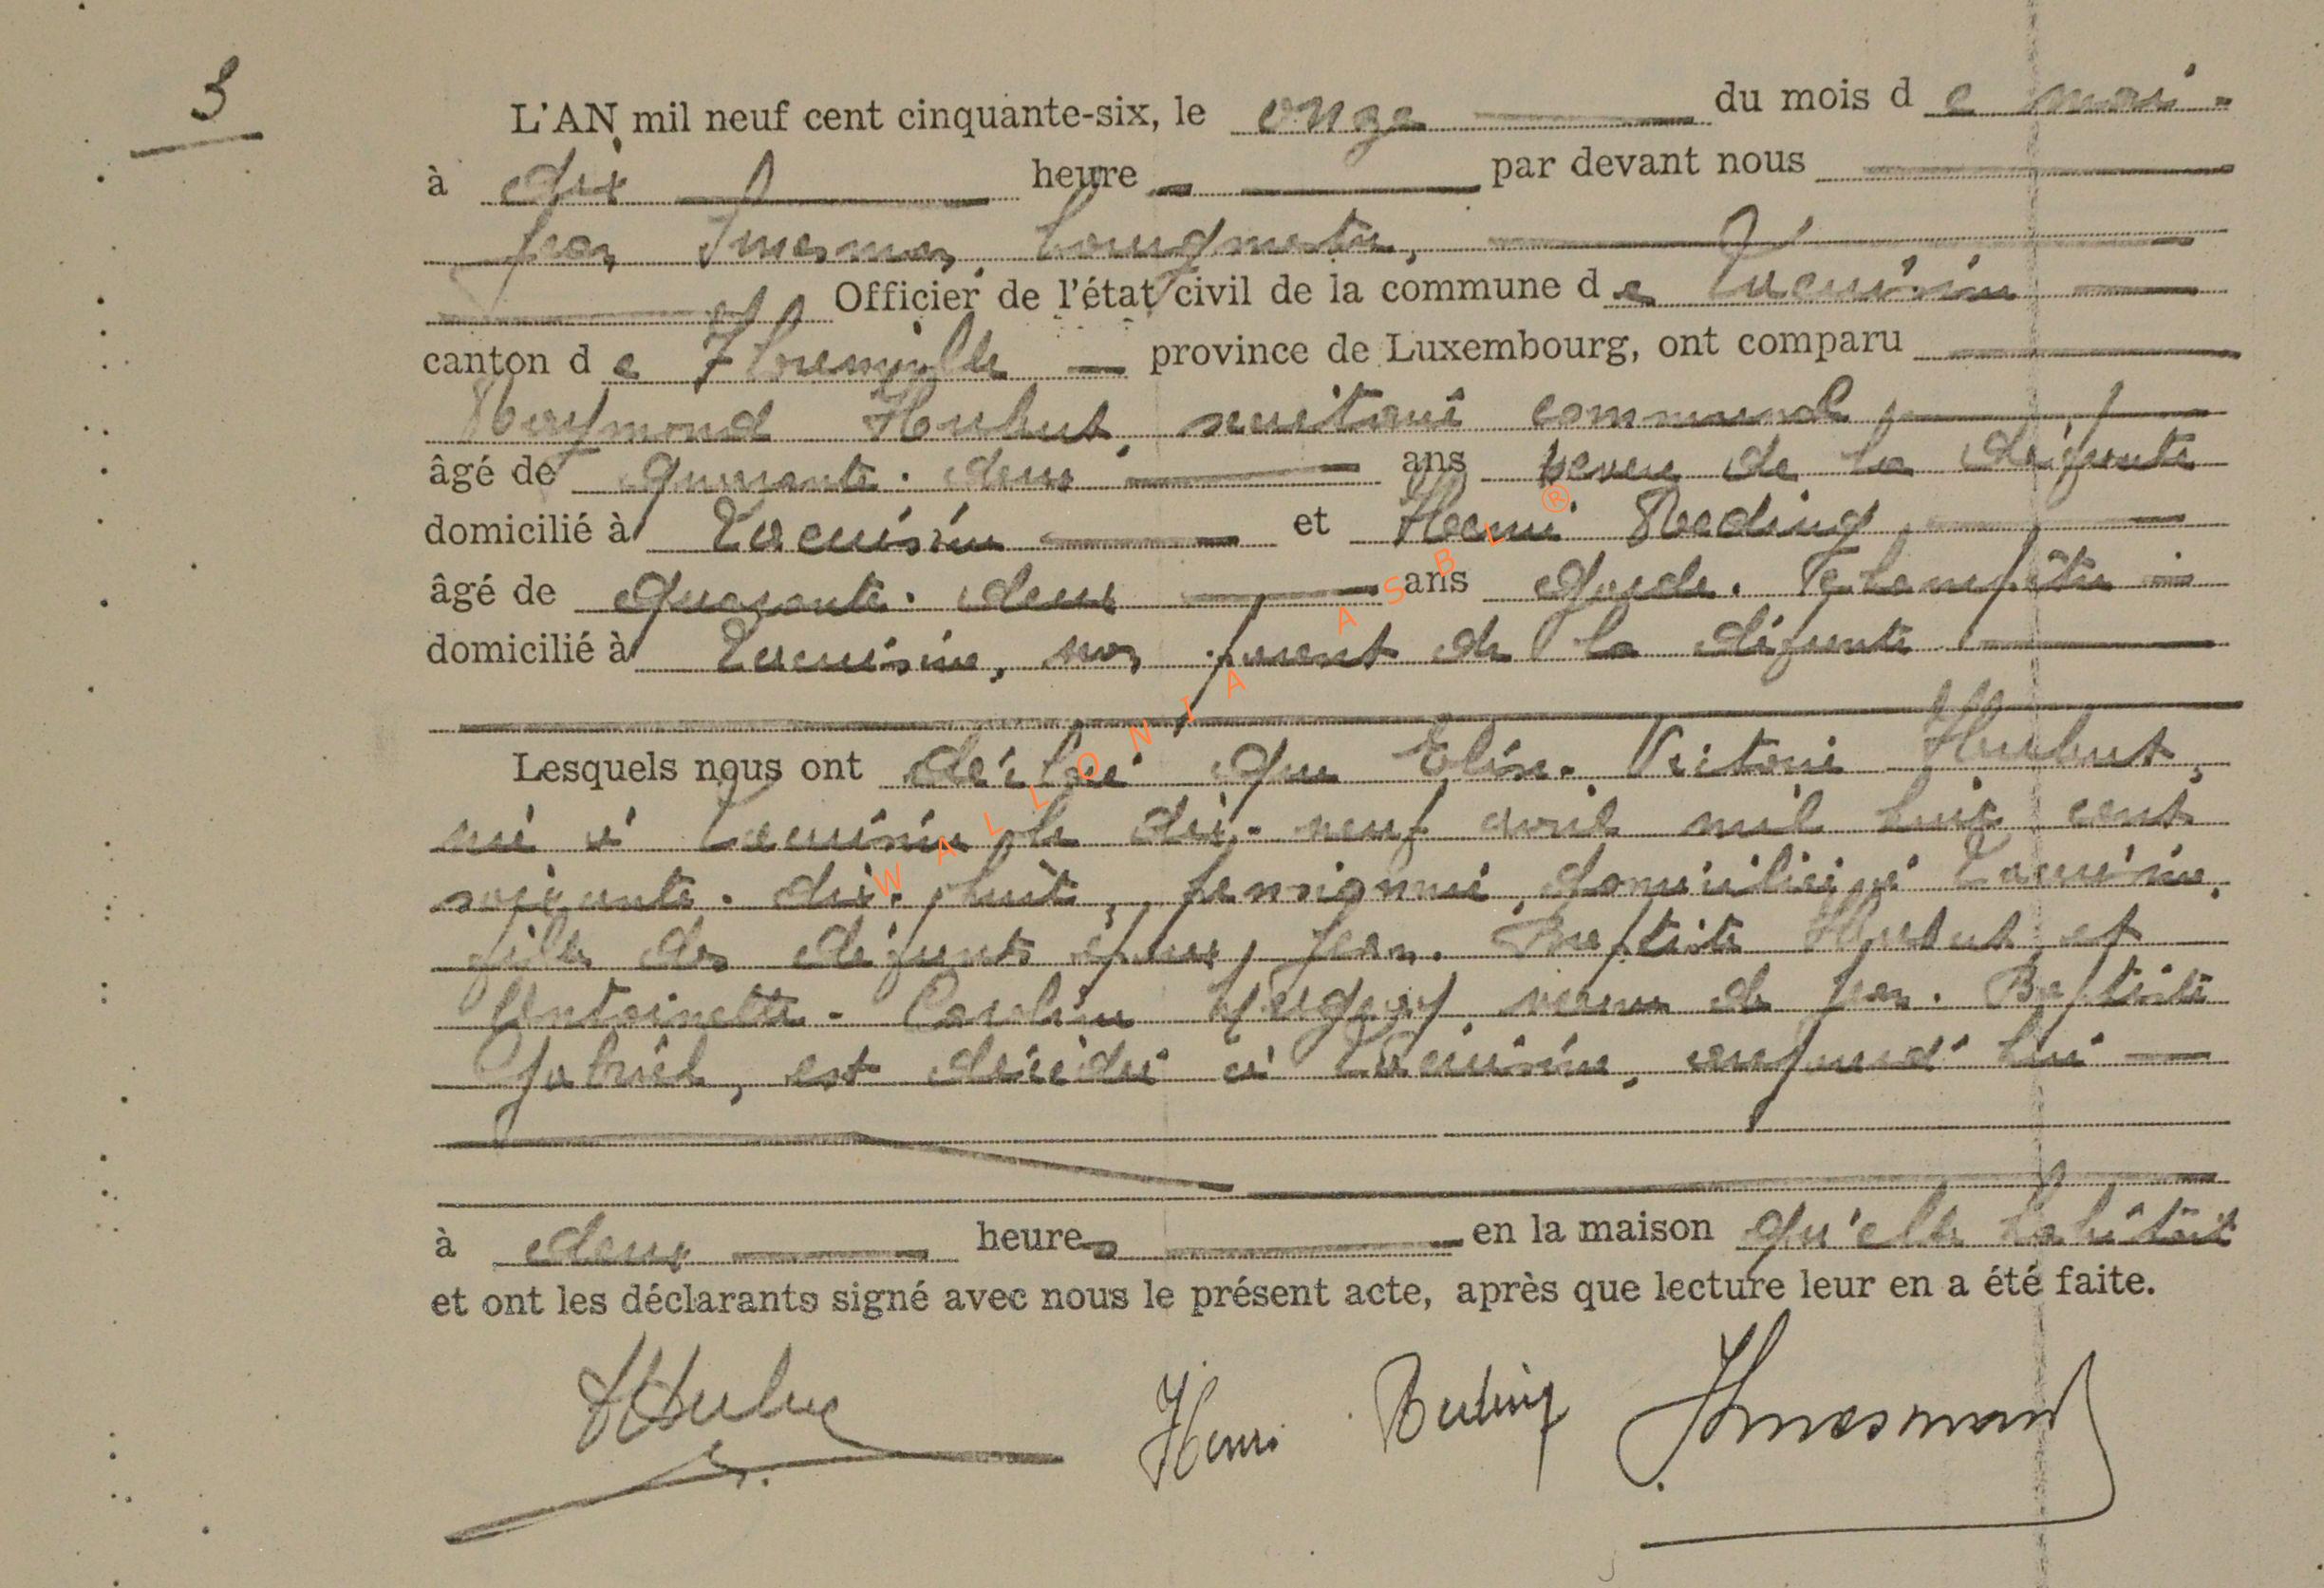 3
L'AN mil neuf cent cinquante-six, le onze du mois de mai
à dix heures par devant nous
Jean Bourgmestre,
Officier de l'état civil de la commune de Lacuisine
canton de Florenville province de Luxembourg, ont comparu
Raymond Hubert, secrétaire communal,
âgé de quarante-deux ans neveu de la défunte
domicilié à Lacuisine et Henri Reding,
âgé de quarante-deux ans garde-champêtre
domicilié à Lacuisine, non parent de la défunte
Lesquels nous ont déclaré que Elise-Victorine Hubert,
née à Lacuisine le dix-neuf avril mil huit cent
soixante-dix-huit, pensionnée, domiciliée à Lacuisine,
fille des défunts époux Jean-Baptiste Hubert et
Antoinette-Caroline veuve de Jean-Baptiste
Gabriel, est décédée à Lacuisine, aujourd'hui
à deux heures en la maison qu'elle habitait
et ont les déclarants signé avec nous le présent acte, après que lecture leur en a été faite.
Henri Reding
WALLONIA ASBL ®